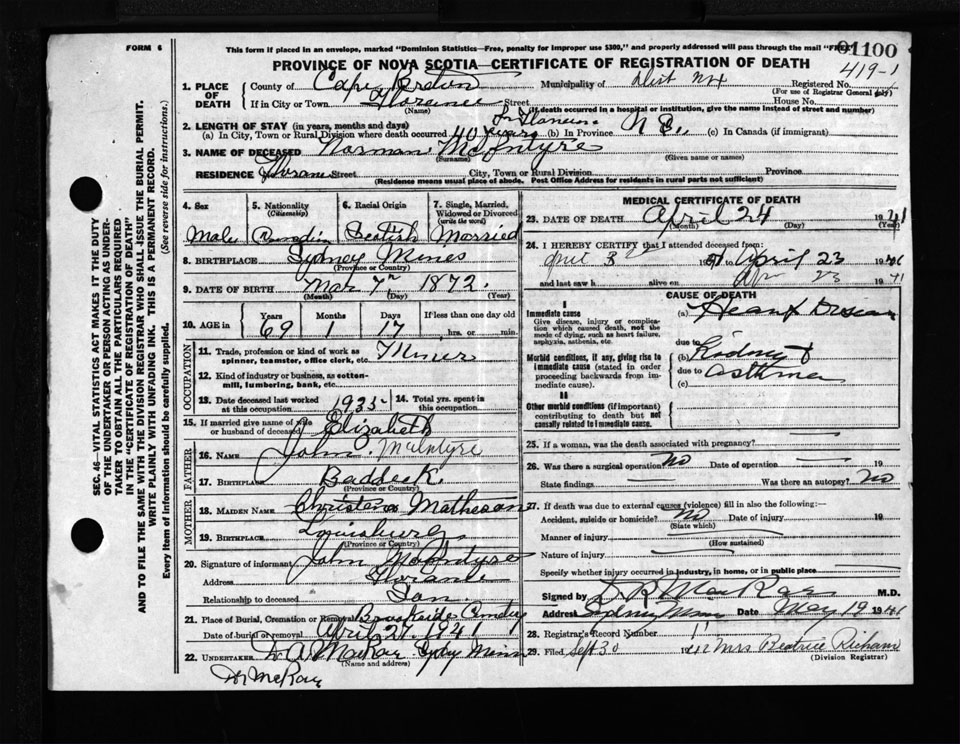 FORM 6
This form if placed in an envelope, marked "Dominion Statistics—Free, penalty for improper use $300," and properly addressed will pass through the mail "FREE"
01100
PROVINCE OF NOVA SCOTIA—CERTIFICATE OF REGISTRATION OF DEATH
419-1
1. PLACE OF DEATH
County of Cape Breton Municipality of Dist No Registered No.
(For use of Registrar General only)
If in City or Town Florence Street House No.
(Name) (If death occurred in a hospital or institution, give the name instead of street and number)
2. LENGTH OF STAY (in years, months and days)
(a) In City, Town or Rural Division where death occurred 40 years (b) In Province (c) In Canada (if immigrant)
3. NAME OF DECEASED Norman McIntyre
(Surname) (Given name or names)
RESIDENCE Street City, Town or Rural Division Province
(Residence means usual place of abode. Post Office Address for residents in rural parts not sufficient)
4. Sex Male
5. Nationality (Citizenship) Canadian
6. Racial Origin Scotish
7. Single, Married, Widowed or Divorced (write the word) Married
8. BIRTHPLACE Sydney Mines
(Province or Country)
9. DATE OF BIRTH Mar 7 1872
(Month) (Day) (Year)
10. AGE in Years 69 Months 1 Days 17 If less than one day old hrs. or min.
OCCUPATION
11. Trade, profession or kind of work as spinner, teamster, office clerk, etc. Miner
12. Kind of industry or business, as cotton-mill, lumbering, bank, etc.
13. Date deceased last worked at this occupation 1935 14. Total yrs. spent in this occupation
15. If married give name of wife or husband of deceased Elizabeth
FATHER
16. NAME John McIntyre
17. BIRTHPLACE Baddeck
(Province or Country)
MOTHER
18. MAIDEN NAME Christena Matheson
19. BIRTHPLACE Louisburg
(Province or Country)
20. Signature of informant John McIntyre
Address Florence
Relationship to deceased Son
21. Place of Burial, Cremation or Removal Brookside
Date of burial or removal April 27, 1941
22. UNDERTAKER A. McKay Sydney Mines
(Name and address)
McKay
MEDICAL CERTIFICATE OF DEATH
23. DATE OF DEATH April 24 1941
(Month) (Day) (Year)
24. I HEREBY CERTIFY that I attended deceased from
to April 23 1941
and last saw h alive on Apr 23 1941
CAUSE OF DEATH
I
Immediate cause
Give disease, injury or complication which caused death, not the mode of dying, such as heart failure, asphyxia, asthenia, etc.
(a) Heart Disease
due to
Morbid conditions, if any, giving rise to immediate cause (stated in order proceeding backwards from immediate cause).
(b) Kidney &
due to Asthma
(c)
II
Other morbid conditions (if important) contributing to death but not causally related to immediate cause.
25. If a woman, was the death associated with pregnancy?
26. Was there a surgical operation? No Date of operation 19
State findings Was there an autopsy? No
27. If death was due to external causes (violence) fill in also the following:—
Accident, suicide or homicide? No Date of injury 19
(State which)
Manner of injury
(How sustained)
Nature of injury
Specify whether injury occurred in industry, in home, or in public place
Signed by MacRae M.D.
Address Sydney Mines Date May 19 1941
28. Registrar's Record Number 11
29. Filed Sept 30 Mrs Beatrice
(Division Registrar)
SEC. 46—VITAL STATISTICS ACT MAKES IT THE DUTY
OF THE UNDERTAKER OR PERSON ACTING AS UNDERTAKER TO OBTAIN ALL THE PARTICULARS REQUIRED
IN THE "CERTIFICATE OF REGISTRATION OF DEATH"
AND TO FILE THE SAME WITH THE DIVISION REGISTRAR WHO SHALL ISSUE THE BURIAL PERMIT.
WRITE PLAINLY WITH UNFADING INK. THIS IS A PERMANENT RECORD.
Every item of Information should be carefully supplied. (See reverse side for instructions.)